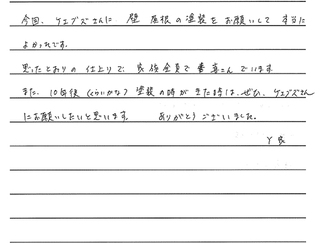 今回、ケエブズさんに 壁 屋根の塗装をお願いして 本当に
よかったです。
思ったとおりの仕上りで、家族全員で 喜こんでいます。
また、10年後(くらいかな) 塗装の時が きた時は、ぜひ、ケエブズさん
にお願いしたいと思います。 ありがとうございました。
Y 良